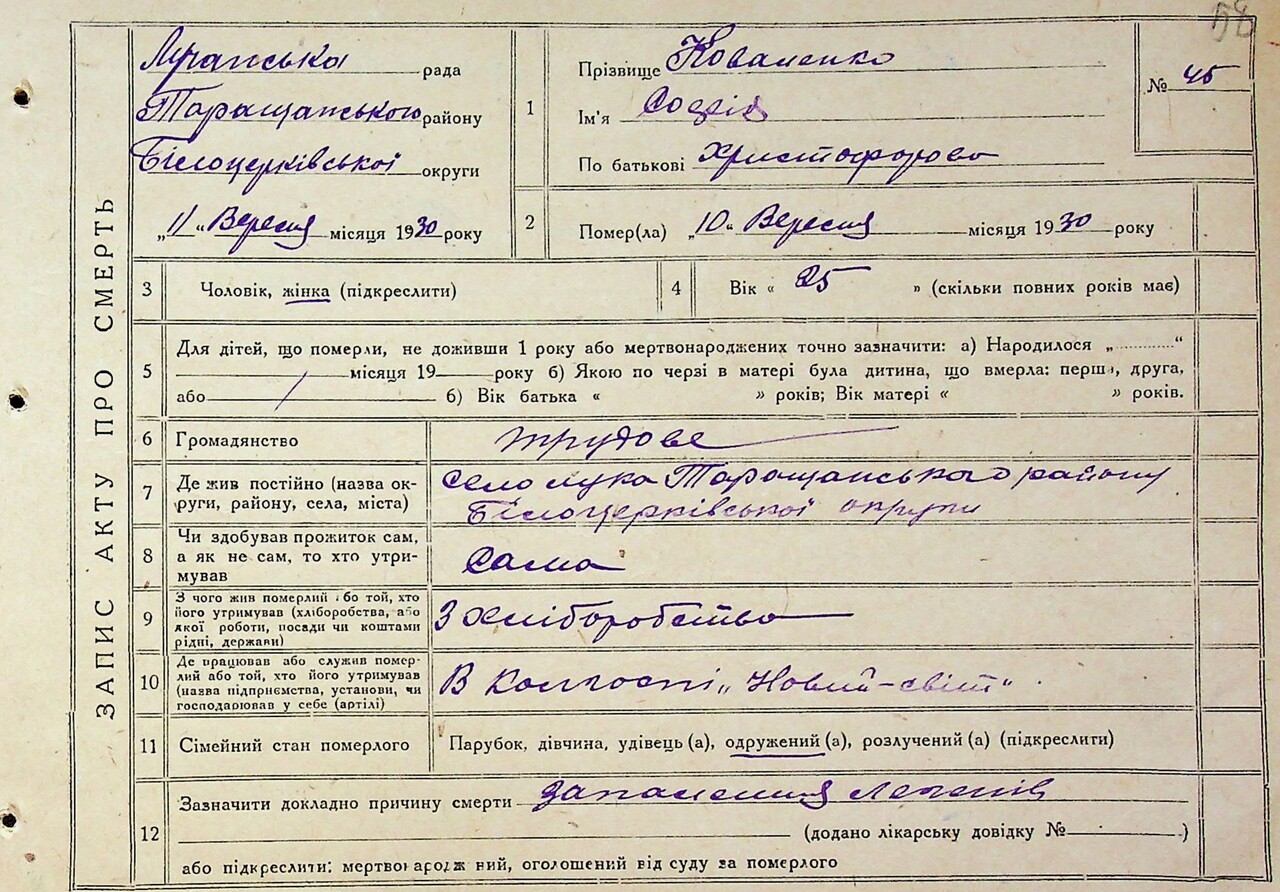 58
ЗАПИС АКТУ ПРО СМЕРТЬ
Лучанська рада
Таращанського району
Білоцерківської округи
„11“ Вересня місяця 1930 року
1
Прізвище Коваленко
Ім'я Софія
По батькові Христофорова
№ 45
2
Помер(ла) „10“ Вересня місяця 1930 року
3 Чоловік, жінка (підкреслити)
4 Вік « 25 » (скільки повних років має)
5
Для дітей, що померли, не доживши 1 року або мертвонароджених точно зазначити: а) Народилося „ “
місяця 19 року б) Якою по черзі в матері була дитина, що вмерла: перша, друга,
або б) Вік батька « » років; Вік матері « » років.
6 Громадянство трудове
7
Де жив постійно (назва ок-
руги, району, села, міста)
село Лука Таращанського району
Білоцерківської округи
8
Чи здобував прожиток сам,
а як не сам, то хто утри-
мував
Сама
9
З чого жив померлий або той, хто
його утримував (хліборобства, або
якої роботи, посади чи коштами
рідні, держави)
З хліборобства
10
Де працював або служив помер-
лий або той, хто його утримував
(назва підприємства, установи, чи
господарював у себе (артілі)
В колгоспі „Новий-світ“
11 Сімейний стан померлого Парубок, дівчина, удівець (а), одружений (а), розлучений (а) (підкреслити)
12
Зазначити докладно причину смерти запалення легенів
(додано лікарську довідку № )
або підкреслити: мертвонароджений, оголошений від суду за померлого